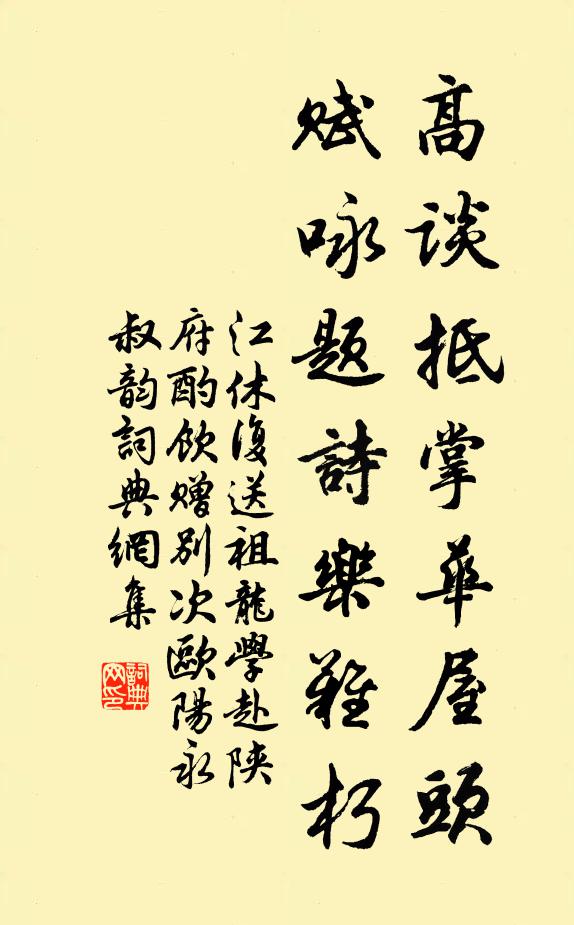 高談抵掌華屋頭
賦咏題詩樂難朽
江休復送祖龍學赴陝
府酌飲贈別次歐陽永
叔韵詞典網集
詞典
网印